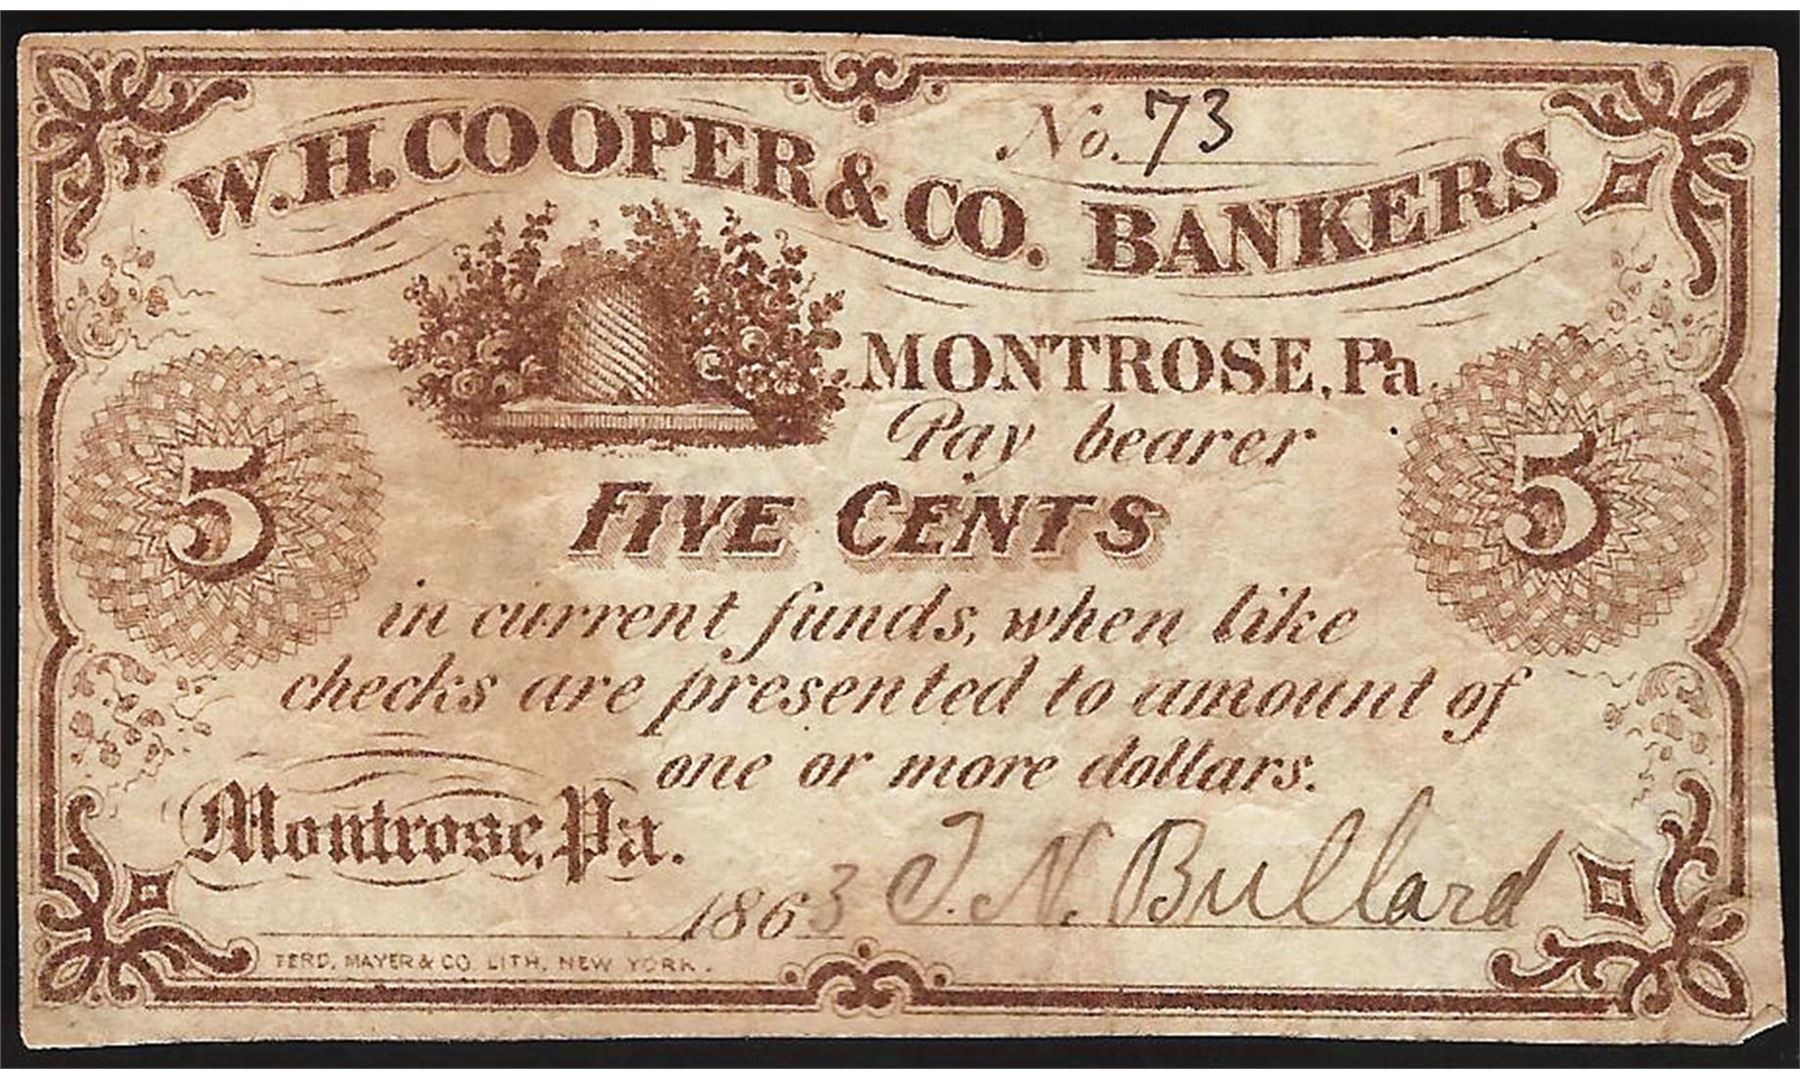 No. 73
W. H. COOPER & CO. BANKERS
MONTROSE, Pa.
Pay bearer
5 FIVE CENTS 5
in current funds, when like
checks are presented to amount of
one or more dollars.
Montrose, Pa.
1863 J. N. Bullard
FERD. MAYER & CO. LITH. NEW YORK.